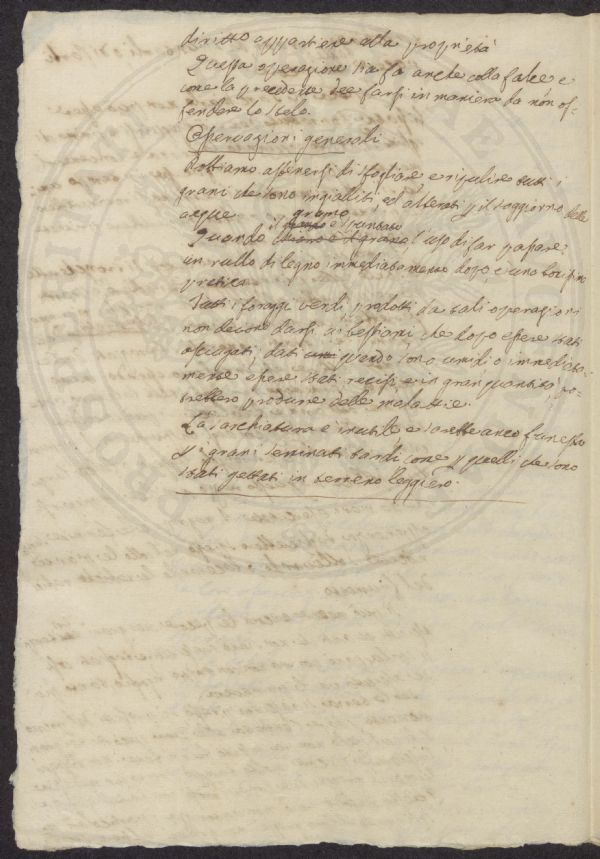 diritto appartiene alla proprietà
Questa operazione si fa anche colla falce e
come la precedente dee farsi in maniera da non of-
fendere lo stelo.
Osservazioni generali
Dobbiamo astenersi di sfogliare e ripulire tutti i
grani che sono ingialliti, ed alterati p il soggiorno delle
acque.
il grano è spuntato
Quando l'uso di far passare
un rullo di legno immediatamente dopo, è una
pratica
Tutti i foraggi verdi prodotti da tali operazioni
non devono darsi ai bestiami, che dopo essere stati
asciugati; dati quando sono umidi o immediata-
mente essere stati recisi e in gran quantità po-
trebbero produrre delle malattie.
La sarchiatura è inutile, e sarebbe anco funesta
p i grani seminati tardi come p quelli che sono
stati gettati in terreno leggiero.